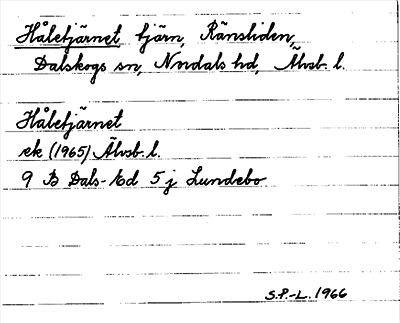 Håletjärnet, tjärn, Ränsliden,
Dalskogs sn, Nordals hd, Älvsb. l.
Håletjärnet
ek (1965) Älvsb. l.
9 B Dals-Ed 5 j Lundebo
S.P.-L. 1966